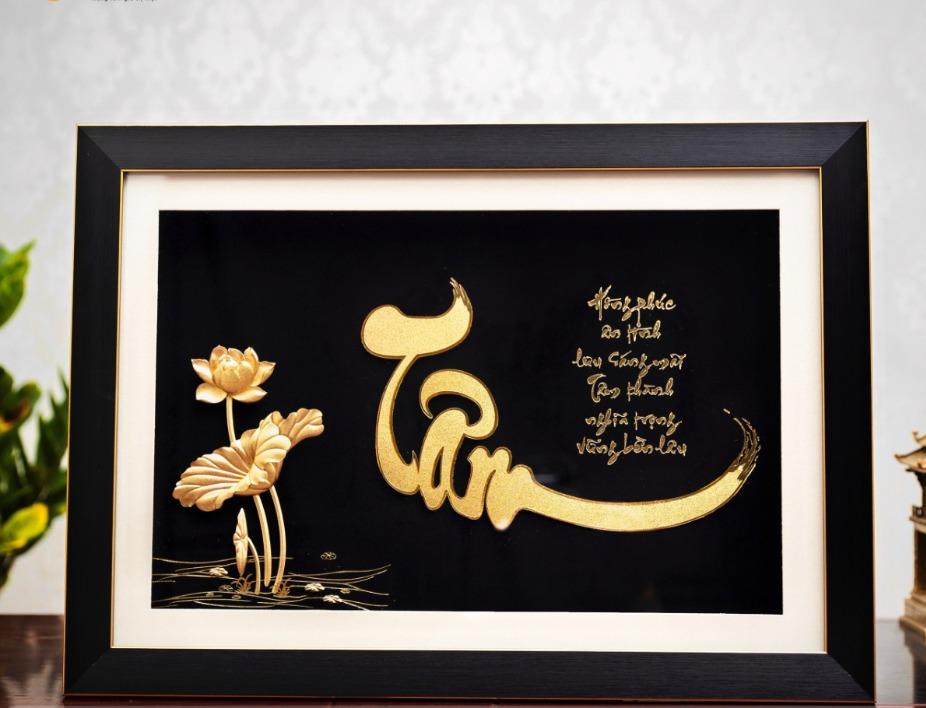 Tâm
Hồng phúc
ân tình
lưu sáng mãi
Tâm thành
nghĩa trọng
vững bền lâu